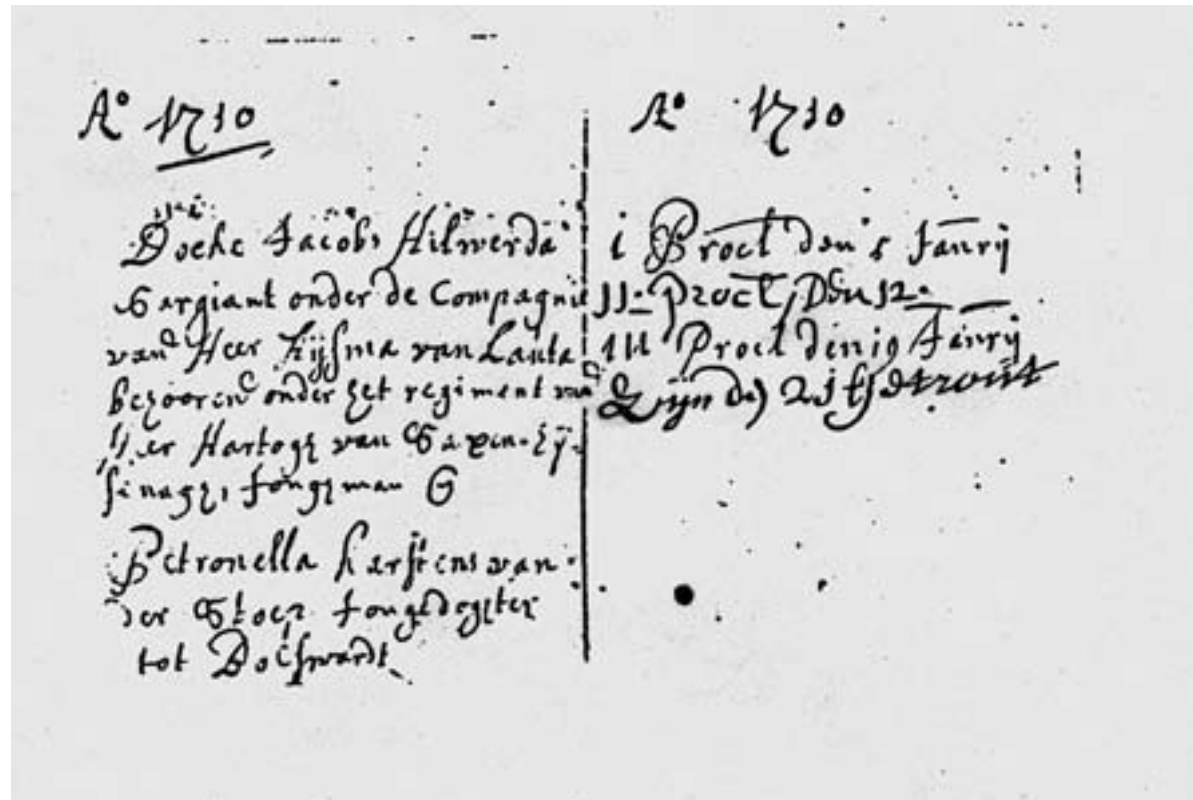 Aº 1710
Doeke Jacobs Hilwerda
Sargiant onder de Compagnie
vand Heer Kijsma van Lauta
onder het regiment vand
Heer Hartogh van Saxen-Eij-
senagh, Jonghman &
Petronella Karstens van
der Stoep Jonghdoghter
tot Bolswardt
Aº 1710
i Procl den 5 Janrij
11. procl, Den 12.
111 Procl den 19 Janrij
Zijn den getrout